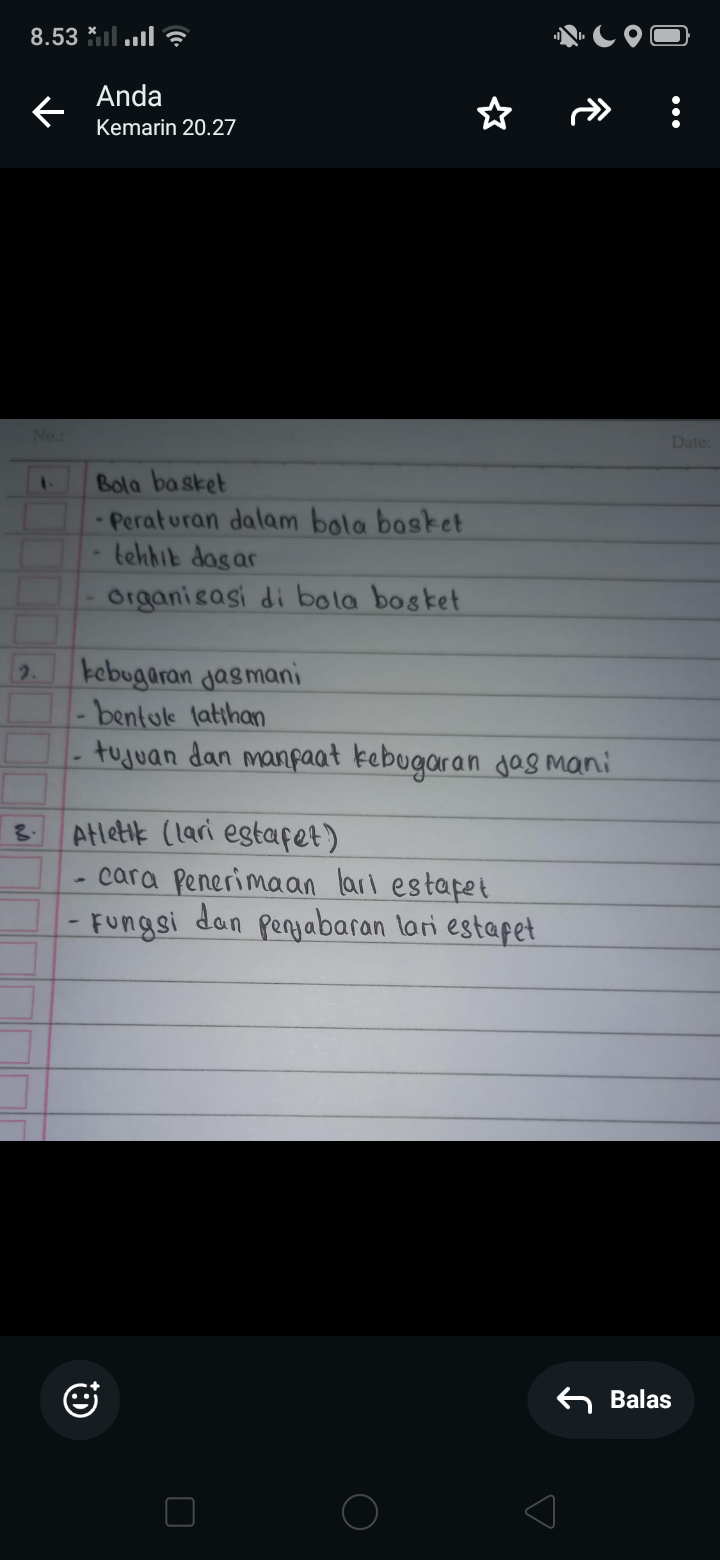 8.53
Anda
Kemarin 20.27
No.:
Date:
1. Bola basket
- Peraturan dalam bola basket
- tehnik dasar
- organisasi di bola basket
2. kebugaran jasmani
- bentuk latihan
- tujuan dan manfaat kebugaran jasmani
3. Atletik (lari estafet)
- cara penerimaan lari estafet
- Fungsi dan penjabaran lari estafet
Balas